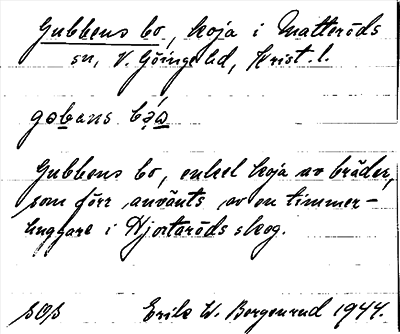 Gubbens bo, koja i Matteröds
sn, V. Göinge hd, Krist. l.
Gubbens bo, enkel koja av bräder,
som förr använts av en timmer-
huggare i Hjortaröds skog.
Erik W. Borgenrud 1944.